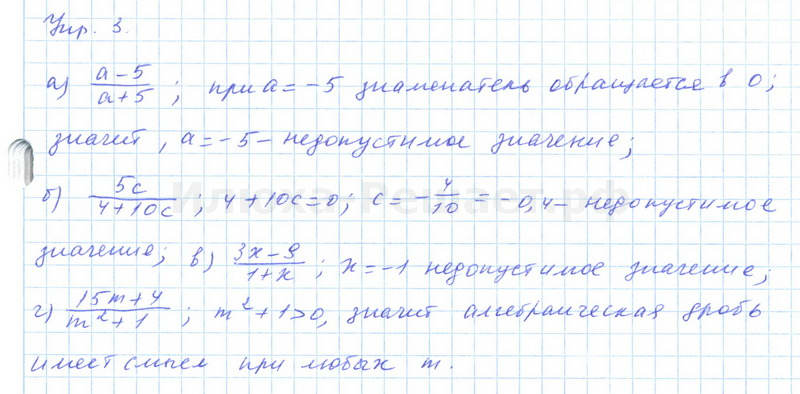 Упр. 3.
а) (a-5)/(a+5) ; при a = -5 знаменатель обращается в 0;
значит, a = -5 - недопустимое значение;
б) 5c/(4+10c) ; 4+10c=0; c = -4/10 = -0,4 - недопустимое
значение; в) (3x-9)/(1+x) ; x = -1 недопустимое значение;
г) (15m+4)/(m²+1) ; m²+1>0, значит алгебраическая дробь
имеет смысл при любых m.
Илюха-Решает.рф